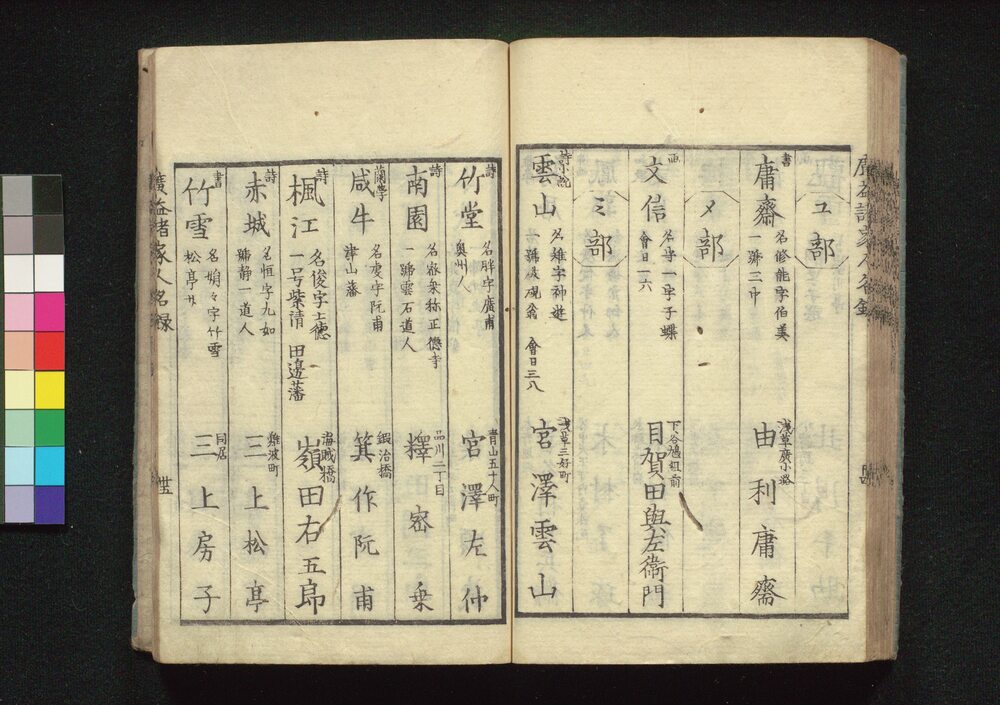 ユ部
書
庸齋 名修能字伯美
一號三巾
浅草廣小路
由利庸齋
メ部
画
文信 名守一字子蝶
會日一六
目賀田與左衛門
ミ部
詩小説
雲山 名雉字神遊
會日三八
浅草三好町
宮澤雲山
詩
竹堂 名胖字廣甫
奥州人
青山五十人町
宮澤左仲
詩
南園 名密乗称正徳寺
一號雲石道人
品川二丁目
釋密乗
蘭学
咸牛 名虔字阮甫
津山藩
鍛治橋
箕作阮甫
詩
楓江 名俊字士徳
一号紫清 田邉藩
海賊橋
嶺田右五郎
詩
赤城 名恒字九如
號静一道人
難波町
三上松亭
書
竹雪 名娟々字竹雪
松亭女
同居
三上房子
廣益諸家人名録
廿五